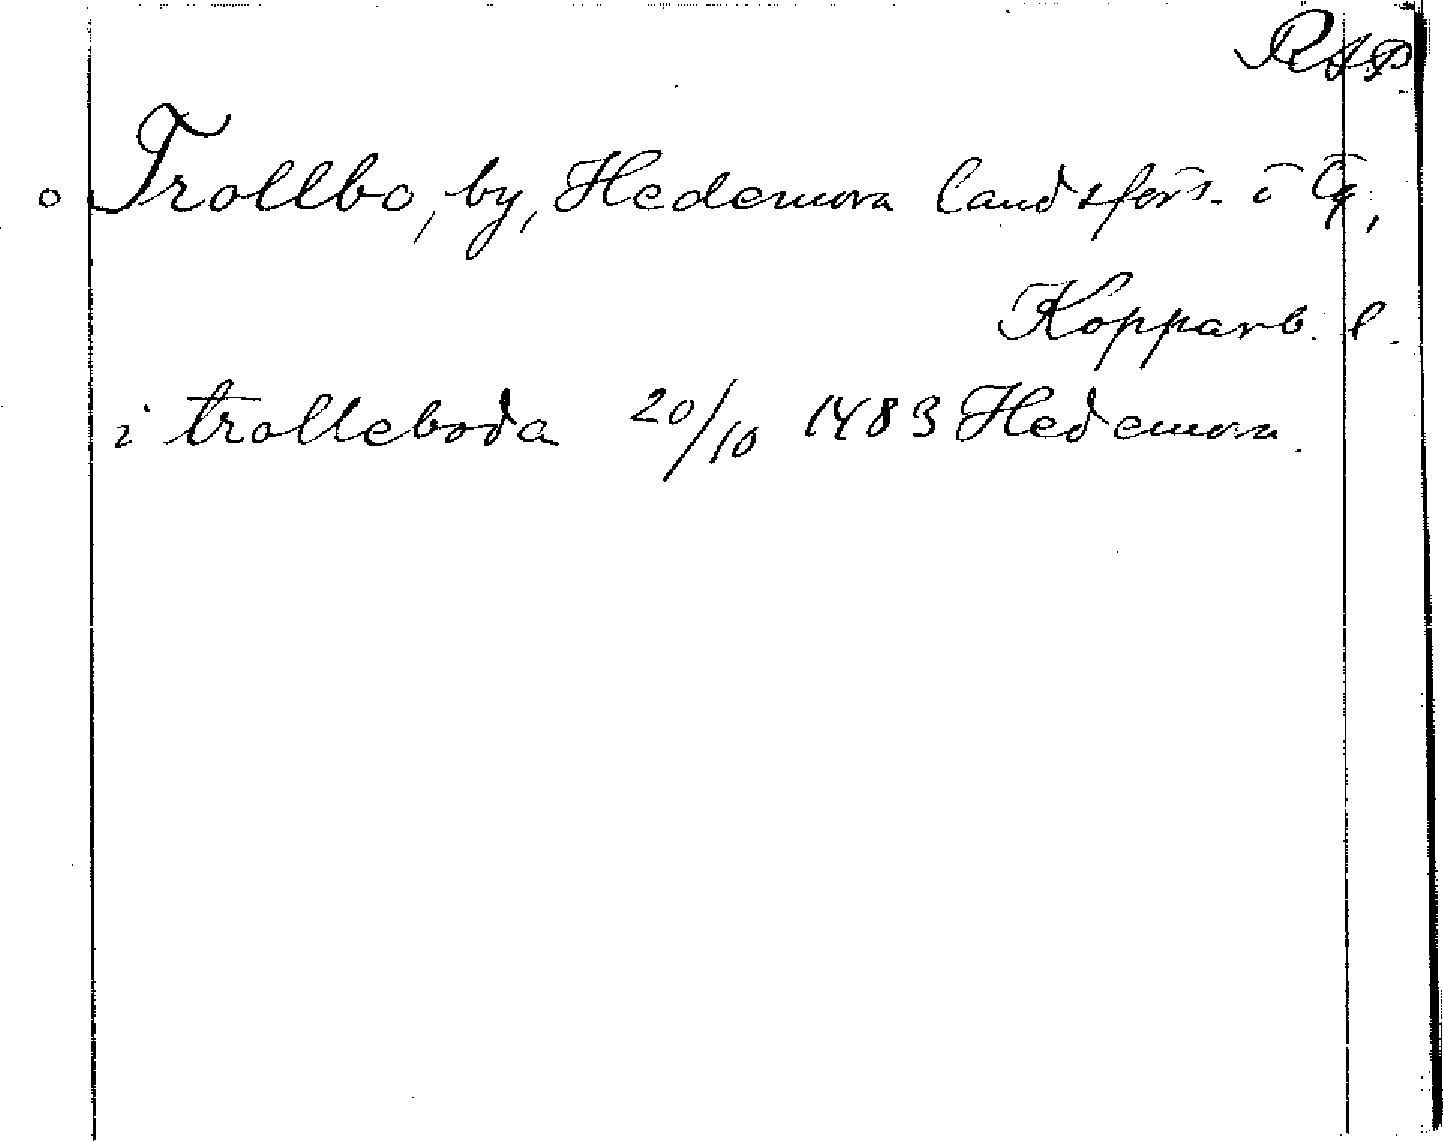 RAP
o Trollbo, by, Hedemora landsförs. o Tg,
Kopparb. l.
i trolleboda 20/10 1483 Hedemora.